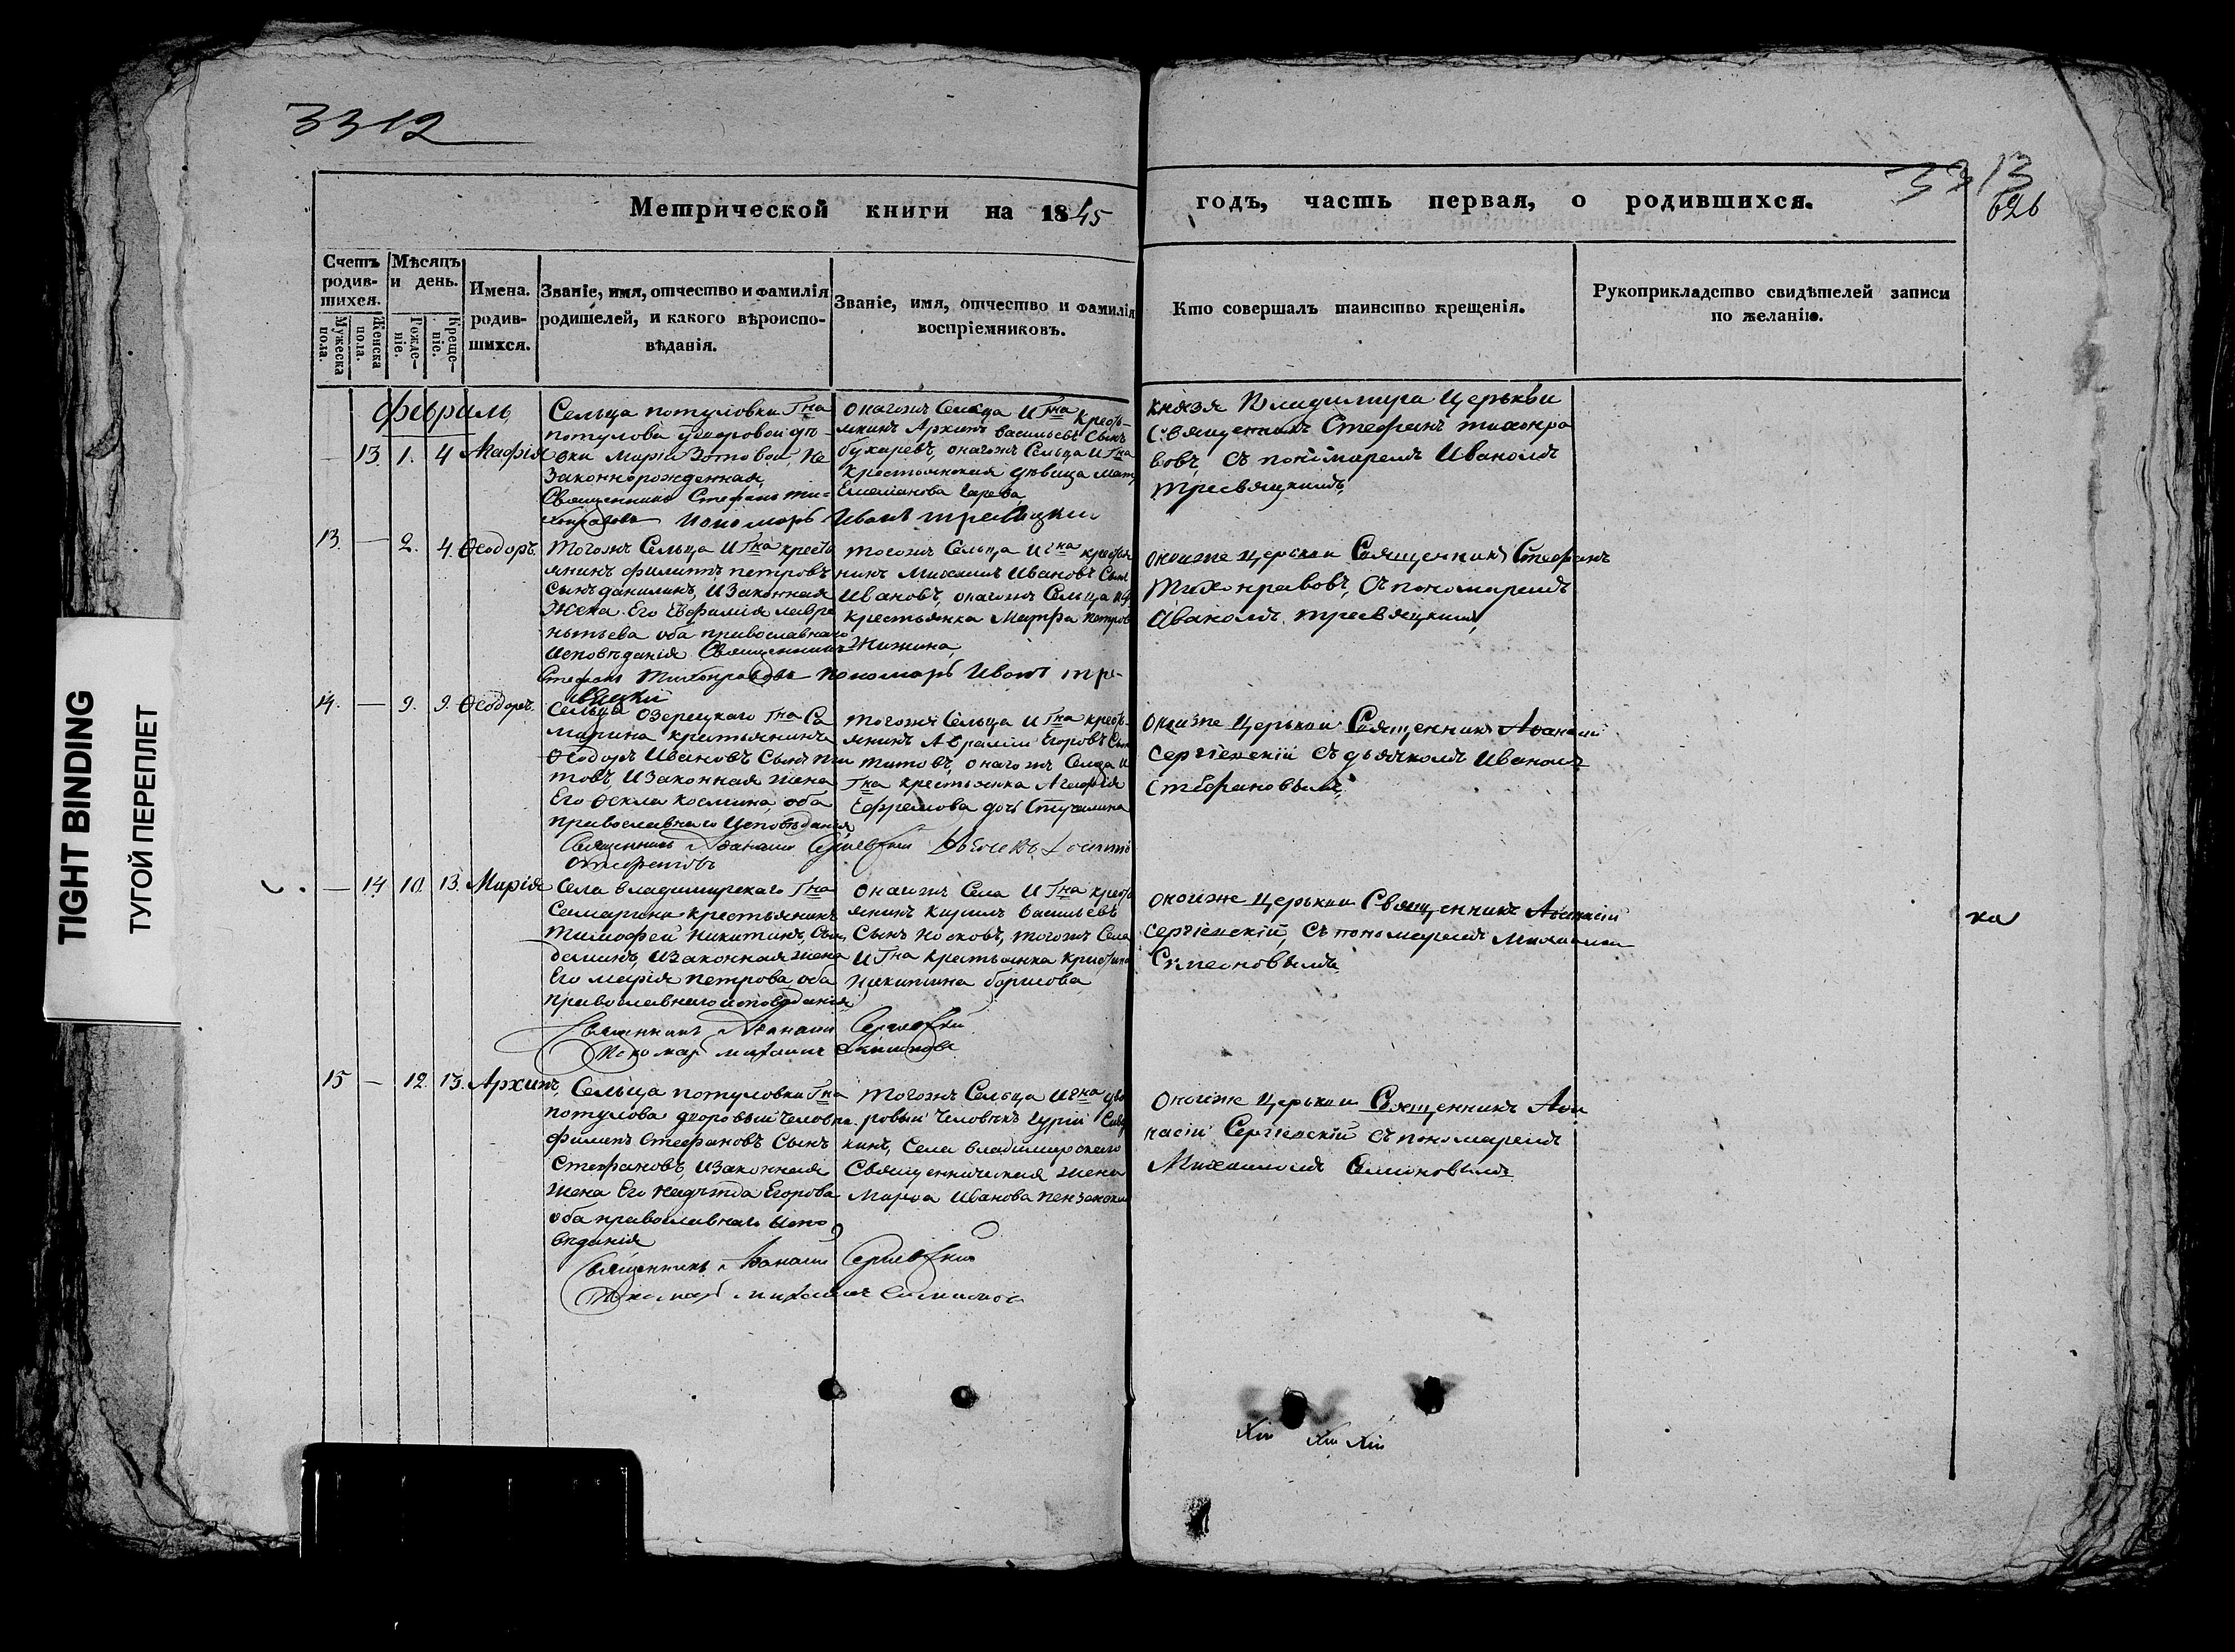 3312
33 13
626
Метрической книги на 1845
годъ, часть первая, о родившихся.
Счетъ родив-шихся.
Мѣсяцъ и день.
Мужеска пола.
Женска пола.
Рожде-ніе.
Креще-ніе.
Имена. родив-шихся.
Званіе, имя, отчество и фамилія
родителей, и какого вѣроиспо-
вѣданія.
Званіе, имя, отчество и фамилія
воспріемниковъ.
Кто совершалъ таинство крещенія.
Рукоприкладство свидѣтелей записи
по желанію.
Февраль
— 13. 1. 4
Сельца потуловки Гна
потулова
Марьи Зотовой, не
Законнорожденная,
Священникъ Стефанъ Ти-
хонравовъ Пономарь Иванъ
онагожъ Сельца и Гна кресть-
янинъ Архипъ васильевъ Сынъ
онагожъ Сельца и Гна
Крестьянская дѣвица
князя Владимира Церькви
Священникъ Стефанъ тихонра
вовъ, съ пономаремъ Иваномъ
тресвяцкимъ,
13. — 2. 4. Ѳеодоръ.
Тогожъ Сельца и Гна кресть
янинъ филиппъ петровъ
сынъ данилинъ, и Законная
Жена Его Евфимія лавре
нтьева оба православнаго
Исповѣданія Священникъ
Стефанъ Тихонравовъ Пономарь Иванъ тре-
свяцкий
тогожъ Сельца и гна крестья
нинъ Михаилъ Ивановъ Сынъ
Ивановъ, онагожъ Сельца
крестьянка Марфа петров
оноиже церькви Священникъ Стефанъ
Тихонравовъ, съ пономаремъ
Иваномъ тресвяцкимъ,
14. — 9. 9. Ѳеодоръ
Сельца Озерецкаго Гна Са
марина крестьянинъ
Ѳеодоръ Ивановъ Сынъ ти
товъ, и Законная жена
Его Ѳекла космина, оба
православнаго Исповѣданія
Священникъ Аѳанасій Сергіевский
тогожъ Сельца и Гна кресть-
янинъ Аврамій Егоровъ Сынъ
титовъ, онагожъ Сельца и
Гна крестьянка Агафія
Ефремова дочь
оноиже Церькви Священникъ Аѳанасій
Сергіевскій съ дьячкомъ Иваномъ
Стефановымъ,
— 14 10. 13. Марія
Села владимирскаго Гна
Самарина крестьянинъ
Тимофей Никитинъ, Сынъ
деминъ, и Законная жена
Его марія петрова, оба
православнаго исповѣданія
Священникъ Аѳанасій Сергіевский
Пономарь михаилъ Симионовъ
онагожъ Села и Гна кресть
янинъ кирилъ васильевъ
Сынъ Носковъ, тогожъ Села
и Гна крестьянка
Никитина борисова
оноиже Церькви Священникъ Аѳанасій
Сергіевскій, съ пономаремъ Михаиломъ
Симеоновымъ
ка
15 — 12. 13. Архипъ,
Сельца потуловки Гна
потулова дворовый человѣкъ
филипъ Стефановъ Сынъ
Стефановъ, и Законная
жена Его Надежда Егорова
оба православнаго Испо
вѣданія
Священникъ Аѳанасій Сергіевский
Пономарь михаилъ Симионовъ
тогожъ Сельца и гна дво
ровый человѣкъ Гурій
Села владимирскаго
Священническая жена
Марѳа Иванова
оноиже Церькви Священникъ Аѳа
насій Сергіевскій съ пономаремъ
Михаиломъ Симионовымъ
TIGHT BINDING
ТУГОЙ ПЕРЕПЛЕТ